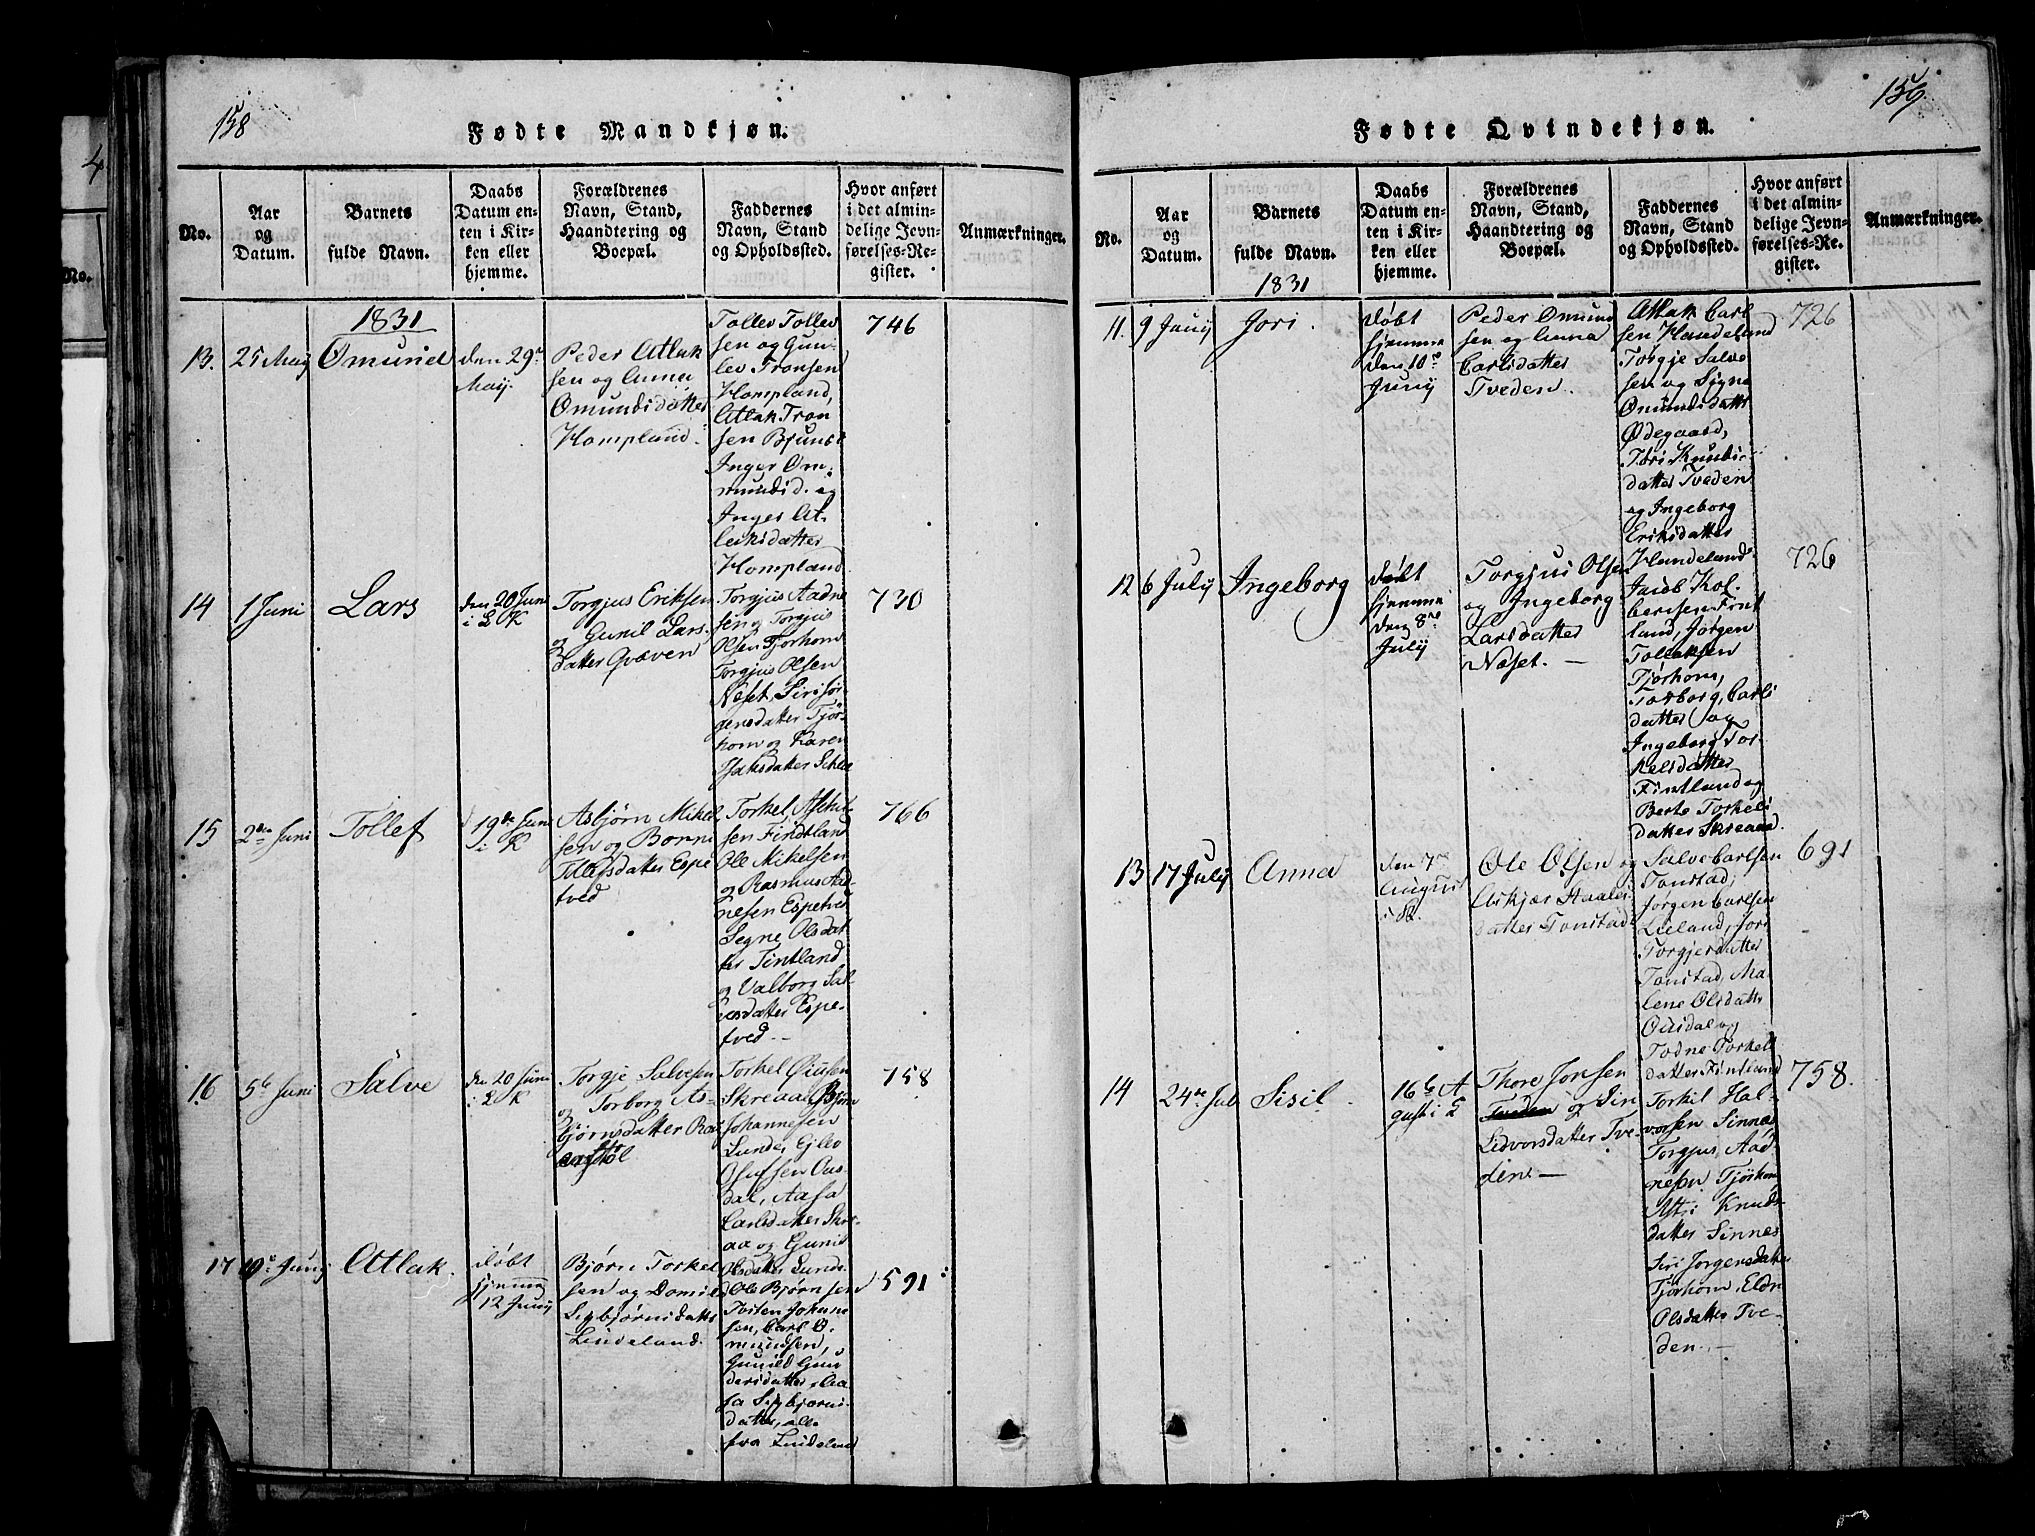 158
Fødte Mandkjøn.
No.
Aar
og
Datum.
Barnets
fulde Navn.
Daabs
Datum en-
ten i Kir-
ken eller
hjemme.
Forældrenes
Navn, Stand,
Haandtering og
Boepæl.
Faddernes
Navn, Stand
og Opholdssted.
Hvor anført
i det almin-
delige Jevn-
førelses-Re-
gister.
Anmærkninger.
1831
13.
25 May
Omund
den 29de
May.
Peder Atlak
sen og Anna
Omundsdatter
Hompland.
Tollev Tollev
sen og Gun-
lev Tronsen
Hompland,
Atlak Tron
sen Bjunes
Inger Om-
mundsd. og
Inger At-
laksdatter
Hompland.
746
14
1 Juni
Lars
den 20 Juni
i L K
Torgjus Eriksen
og Gunil Lars-
datter Qvæven
Torgjus Aadne
sen og Torgjus
Olsen Tjorhom
Torgjus Olsen
Neset, Siri Jør-
gensdatter Tjør-
hom og Karen
730
15
2den Juni
Tollef
19de Juni
i K
Asbjørn Mikel
sen og Borni
Tllefsdatter Espe
tved
Torkel
sen Findtland
Ole Mikelsen
og Rasmus Aad-
nesen Espetved
Segne Olsdat
ter Fintland
og Valborg Sal-
vesdatter Espe-
tved.-
766
16
5te Juni
Salve
den 20 Juni
i L K
Torgje Salvesen
og Torborg As-
bjørnsdatter
Torkel
Skreaa, Bjørn
Johannesen
Lunde, Ejlev
Olufsen Ous-
dal, Aasa
Carlsdatter Skre-
aa og Gunil
Olsdatter Lunde.
758
17
10de Juny
Atlak.
døbt
hjemme
12 Juny
Bjørn Torkel
sen og Domil
Sigbjørnsdatter
Lindeland.
Ole Bjørnsen
Tosten Johann
sen, Carl O-
mundsen,
Gunild Gun
dersdatter, Aa-
sa Sigbjørns-
datter, alle
fra Lindeland
591
159.
Fødte Qvindekjøn.
No.
Aar
og
Datum.
Barnets
fulde Navn.
Daabs
Datum en-
ten i Kir-
ken eller
hjemme.
Forældrenes
Navn, Stand,
Haandtering og
Boepæl.
Faddernes
Navn, Stand
og Opholdssted.
Hvor anført
i det almin-
delige Jevn-
førelses-Re-
gister.
Anmærkninger.
1831
11.
9 Juny
Jori.
døbt
hjemme
den 10de
Juny
Peder Omund
sen og Anna
Carlsdatter
Tveden.
Atlak Carl
sen Haudeland
Torgje Salve
sen og Signe
Omundsdatter
Ødegaard,
Jori Knuds-
datter Tveden
og Ingeborg
Eriksdatter
Haudeland
726
12
6 July
Ingeborg
døbt
hjemme
den 8de
July
Torgjus Olsen
og Ingeborg
Larsdatter
Næset. —
Jacob Kol-
bensen Fint
land, Jørgen
Tollaksen
Tjørhom,
Torborg Carls
datter og
Ingeborg Tor-
kelsdatter
Fintland og
Berte Torkels
datter Skreaa.
726
13
17 July
Anna
den 7de
August
i K.
Ole Olsen og
Askjær Staales
datter Tonstad
Salve Carlsen
Tonstad,
Jørgen Carlsen
Lieland, Jori
Torgjersdatter
Tonstad, Ma-
lene Olsdatter
Ousdal og
Todne Torkels
datter Fintland
691
14
24de Jul
Sisil.
16de A
gust i L
Thore Jonsen
Tveden og Siri
Lidvorsdatter Tve-
den —
Torkil Hal-
vorsen Sinnes
Torgjus Aad-
nesen Tjørhom
Astri Knuds-
datter Sinnes
Siri Jørgensdatter
Tjørhom, Eldri
Olsdatter Tve-
den. —
758.
4
No.